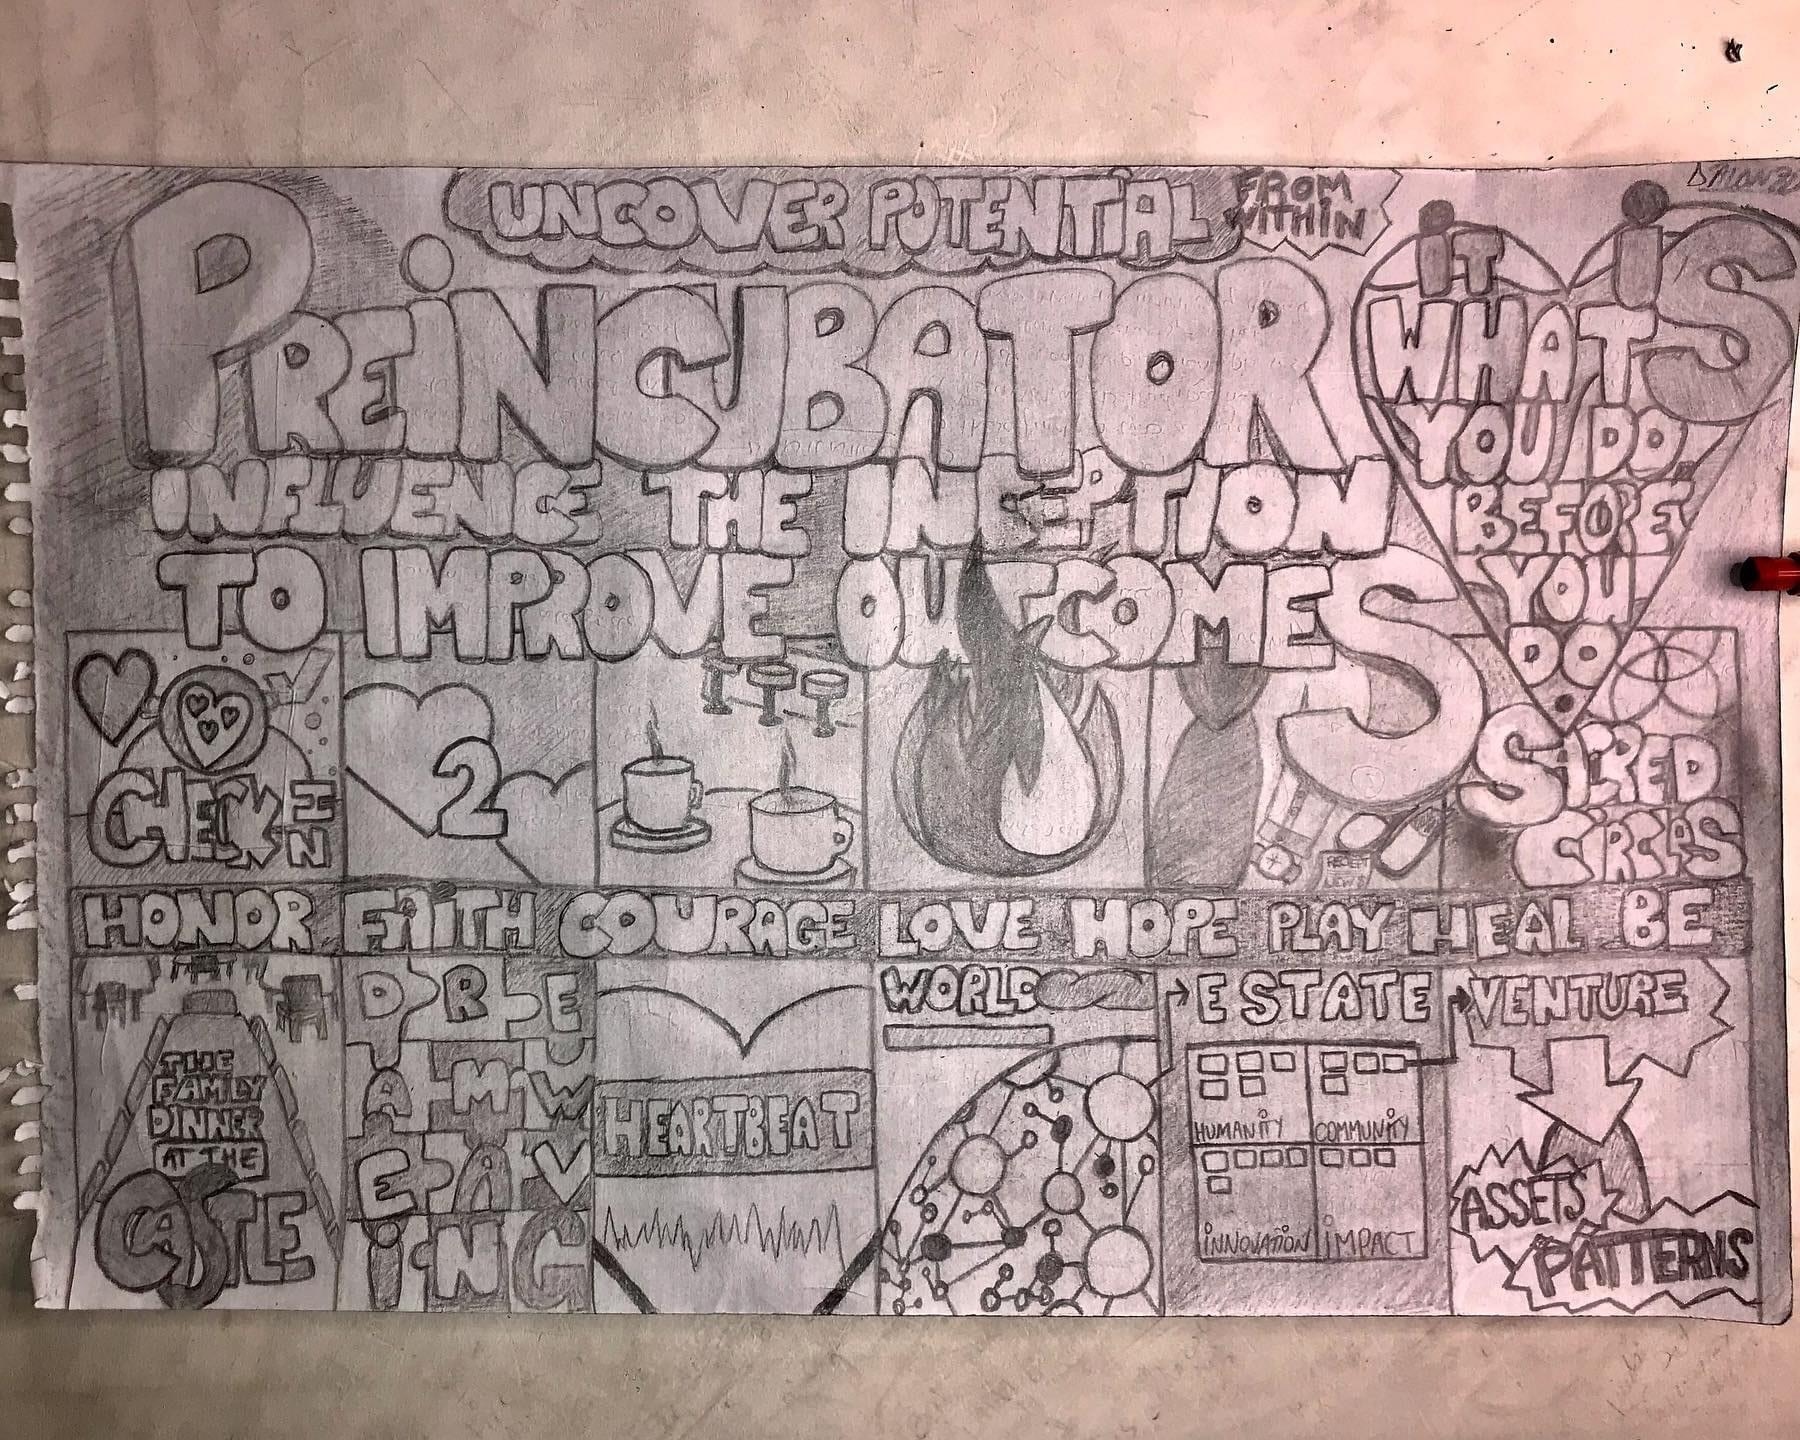 UNCOVER POTENTIAL
FROM
WITHIN
PREINCUBATOR
INFLUENCE THE INCEPTION
TO IMPROVE OUTCOMES
IT IS
WHAT
YOU DO
BEFORE
YOU
DO
CHECK
IN
2
SACRED
CIRCLES
HONOR FAITH COURAGE LOVE HOPE PLAY HEAL BE
THE
FAMILY
DINNER
AT THE
CASTLE
DRE
AMW
EAV
ING
HEARTBEAT
WORLD
ESTATE
HUMANITY
COMMUNITY
INNOVATION
IMPACT
VENTURE
ASSETS
PATTERNS